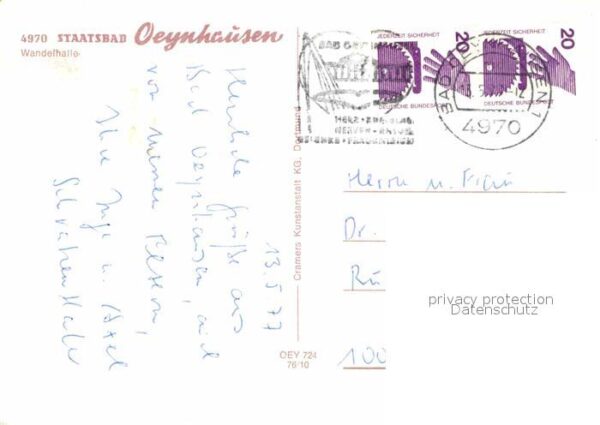 4970 STAATSBAD Oeynhausen
Wandelhalle
13.5.77
Herzliche Grüße aus
Bad Oeynhausen, auch
von meinen Eltern,
Ihre Inge u. Axel
Cramers Kunstanstalt KG, Dortmund
OEY 724
76/10
BAD OEYNHAUSEN
HERZ · KREISLAUF
NERVEN · RHEUMA
GELENKE · FRAUENLEIDEN
JEDERZEIT SICHERHEIT
20
DEUTSCHE BUNDESPOST
JEDERZEIT SICHERHEIT
20
DEUTSCHE BUNDESPOST
BAD OEYNHAUSEN 1
4970
Herrn u. Frau
Dr.
Rü
100
privacy protection
Datenschutz